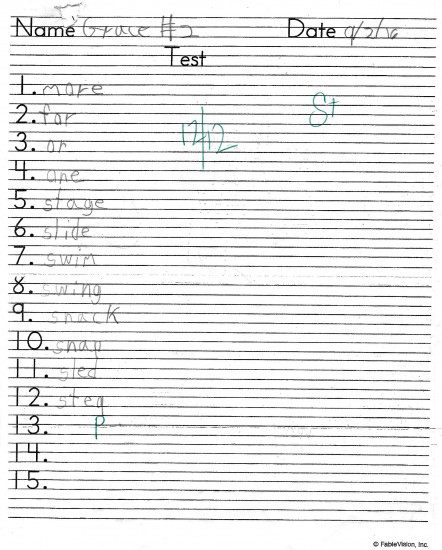 Name Grace #2 Date 9/2/16
Test
1. more
2. for
3. or
4. one
5. stage
6. slide
7. swim
8. swing
9. snack
10. snap
11. sled
12. step
13. p
14.
15.
12/12
St
© FableVision, Inc.